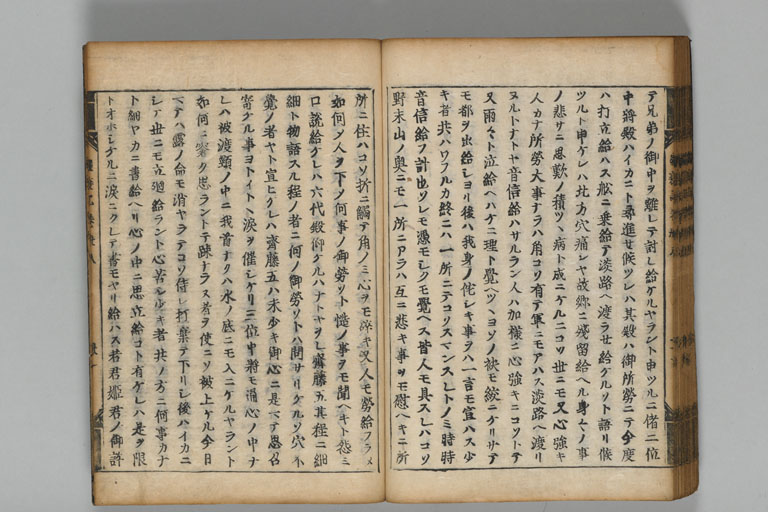 テ兄弟ノ御中ヲ離レテ討レ給ケルヤラント申ツルニ儲二位
中將殿ハイカニト尋進せ候ツレハ其殿ハ御所勞ニテ今度
ハ打立給ハス舩ニ乗給テ淡路ヘ渡ラせ給ケルソト語リ候
ツルト申ケレハ北方穴痛シヤ故郷ニ残留給ヘル身せノ事
ノ悲サニ思歎ノ積ツヽ病ト成ニケルニコソ世ニモ又心強キ
人カナ所勞大事ナラハ角コソ有テ軍ニモアハス淡路ヘ渡リ
ヌルトナトヤ音信給ハサルラン人ハ加樣ニ心強キニコソトテ
又雨々ト泣給ヘハケニ理ト覺ヘツヽヨソノ袂モ絞ニケリサテ
モ都ヲ出給シヨリ後ハ我身ノ侘シキ事ヲハ一言モ宣ハス少
キ者共ハワフルカ終ニハ一所ニテコソスマンスレトノミ時時
音信給フ計也ソレモ憑モシクモ覺ヘス皆人モ具スレハコソ
野末山ノ奥ニモ一所ニアラハ互ニ悲キ事ヲモ慰ヘキニ所
所ニ住ハコソ折ニ觸テ角ノミ心ヲモ碎キ又人モ勞給フラメ
如何ナ人ヲ下タ何事ノ御勞ソト慥ノ事ヲモ聞ヘキト怨ミ
口説給ケレハ六代殿御グルハナトヤヲレ齋藤五其程ニ細
細ト物語スル程ノ者ニ何ノ御勞ソトハ問サリケルソ穴不
覺ノ者ヤト宣ヒケレハ齋藤五ハ未少キ御心ニ是マテ思召
寄ケル事ヨトイトヽ涙ヲ催シケリ三位中將モ通心ノ中ナ
レハ被渡頸ノ中ニ我首ナクハ水ノ底ニモ入ニケルヤラント
如何ニ思ラントテ疎ナラヌ者ヲ使ニソ被上ケル今日
マテハ露ノ命モ消ヤラテコソ侍レ打棄テ下リシ後ハイカニ
シテ世ニモ立廻給ラント心苦シ少キ者共ノ方ニ何事カナ
ト細ヤカニ書給ヘリ心ノ中ニ思立給コト有ケレハ是ヲ限
トオホシケルニ涙ニクレテ書モヤリ給ハス若君姫君ノ御許